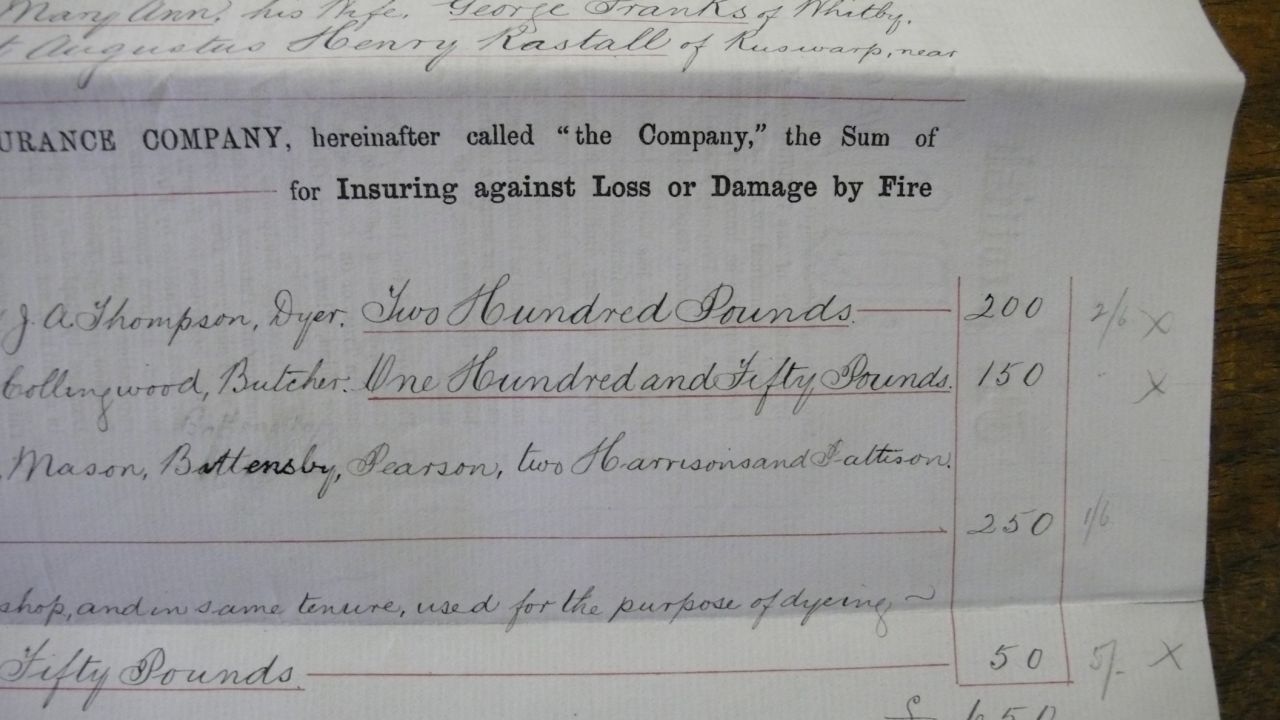 Mary Ann, his Wife, George Franks of Whitby,
Augustus Henry Rastall of Ruswarp, near
URANCE COMPANY, hereinafter called "the Company," the Sum of
for Insuring against Loss or Damage by Fire
J. A. Thompson, Dyer. Two Hundred Pounds. 200 2/6 X
Collingwood, Butcher. One Hundred and Fifty Pounds. 150 X
Mason, Battensby, Pearson, two Harrisons and Pattison.
250 1/6
shop, and in same tenure, used for the purpose of dyeing ~
Fifty Pounds. 50 5/- X
£ 650